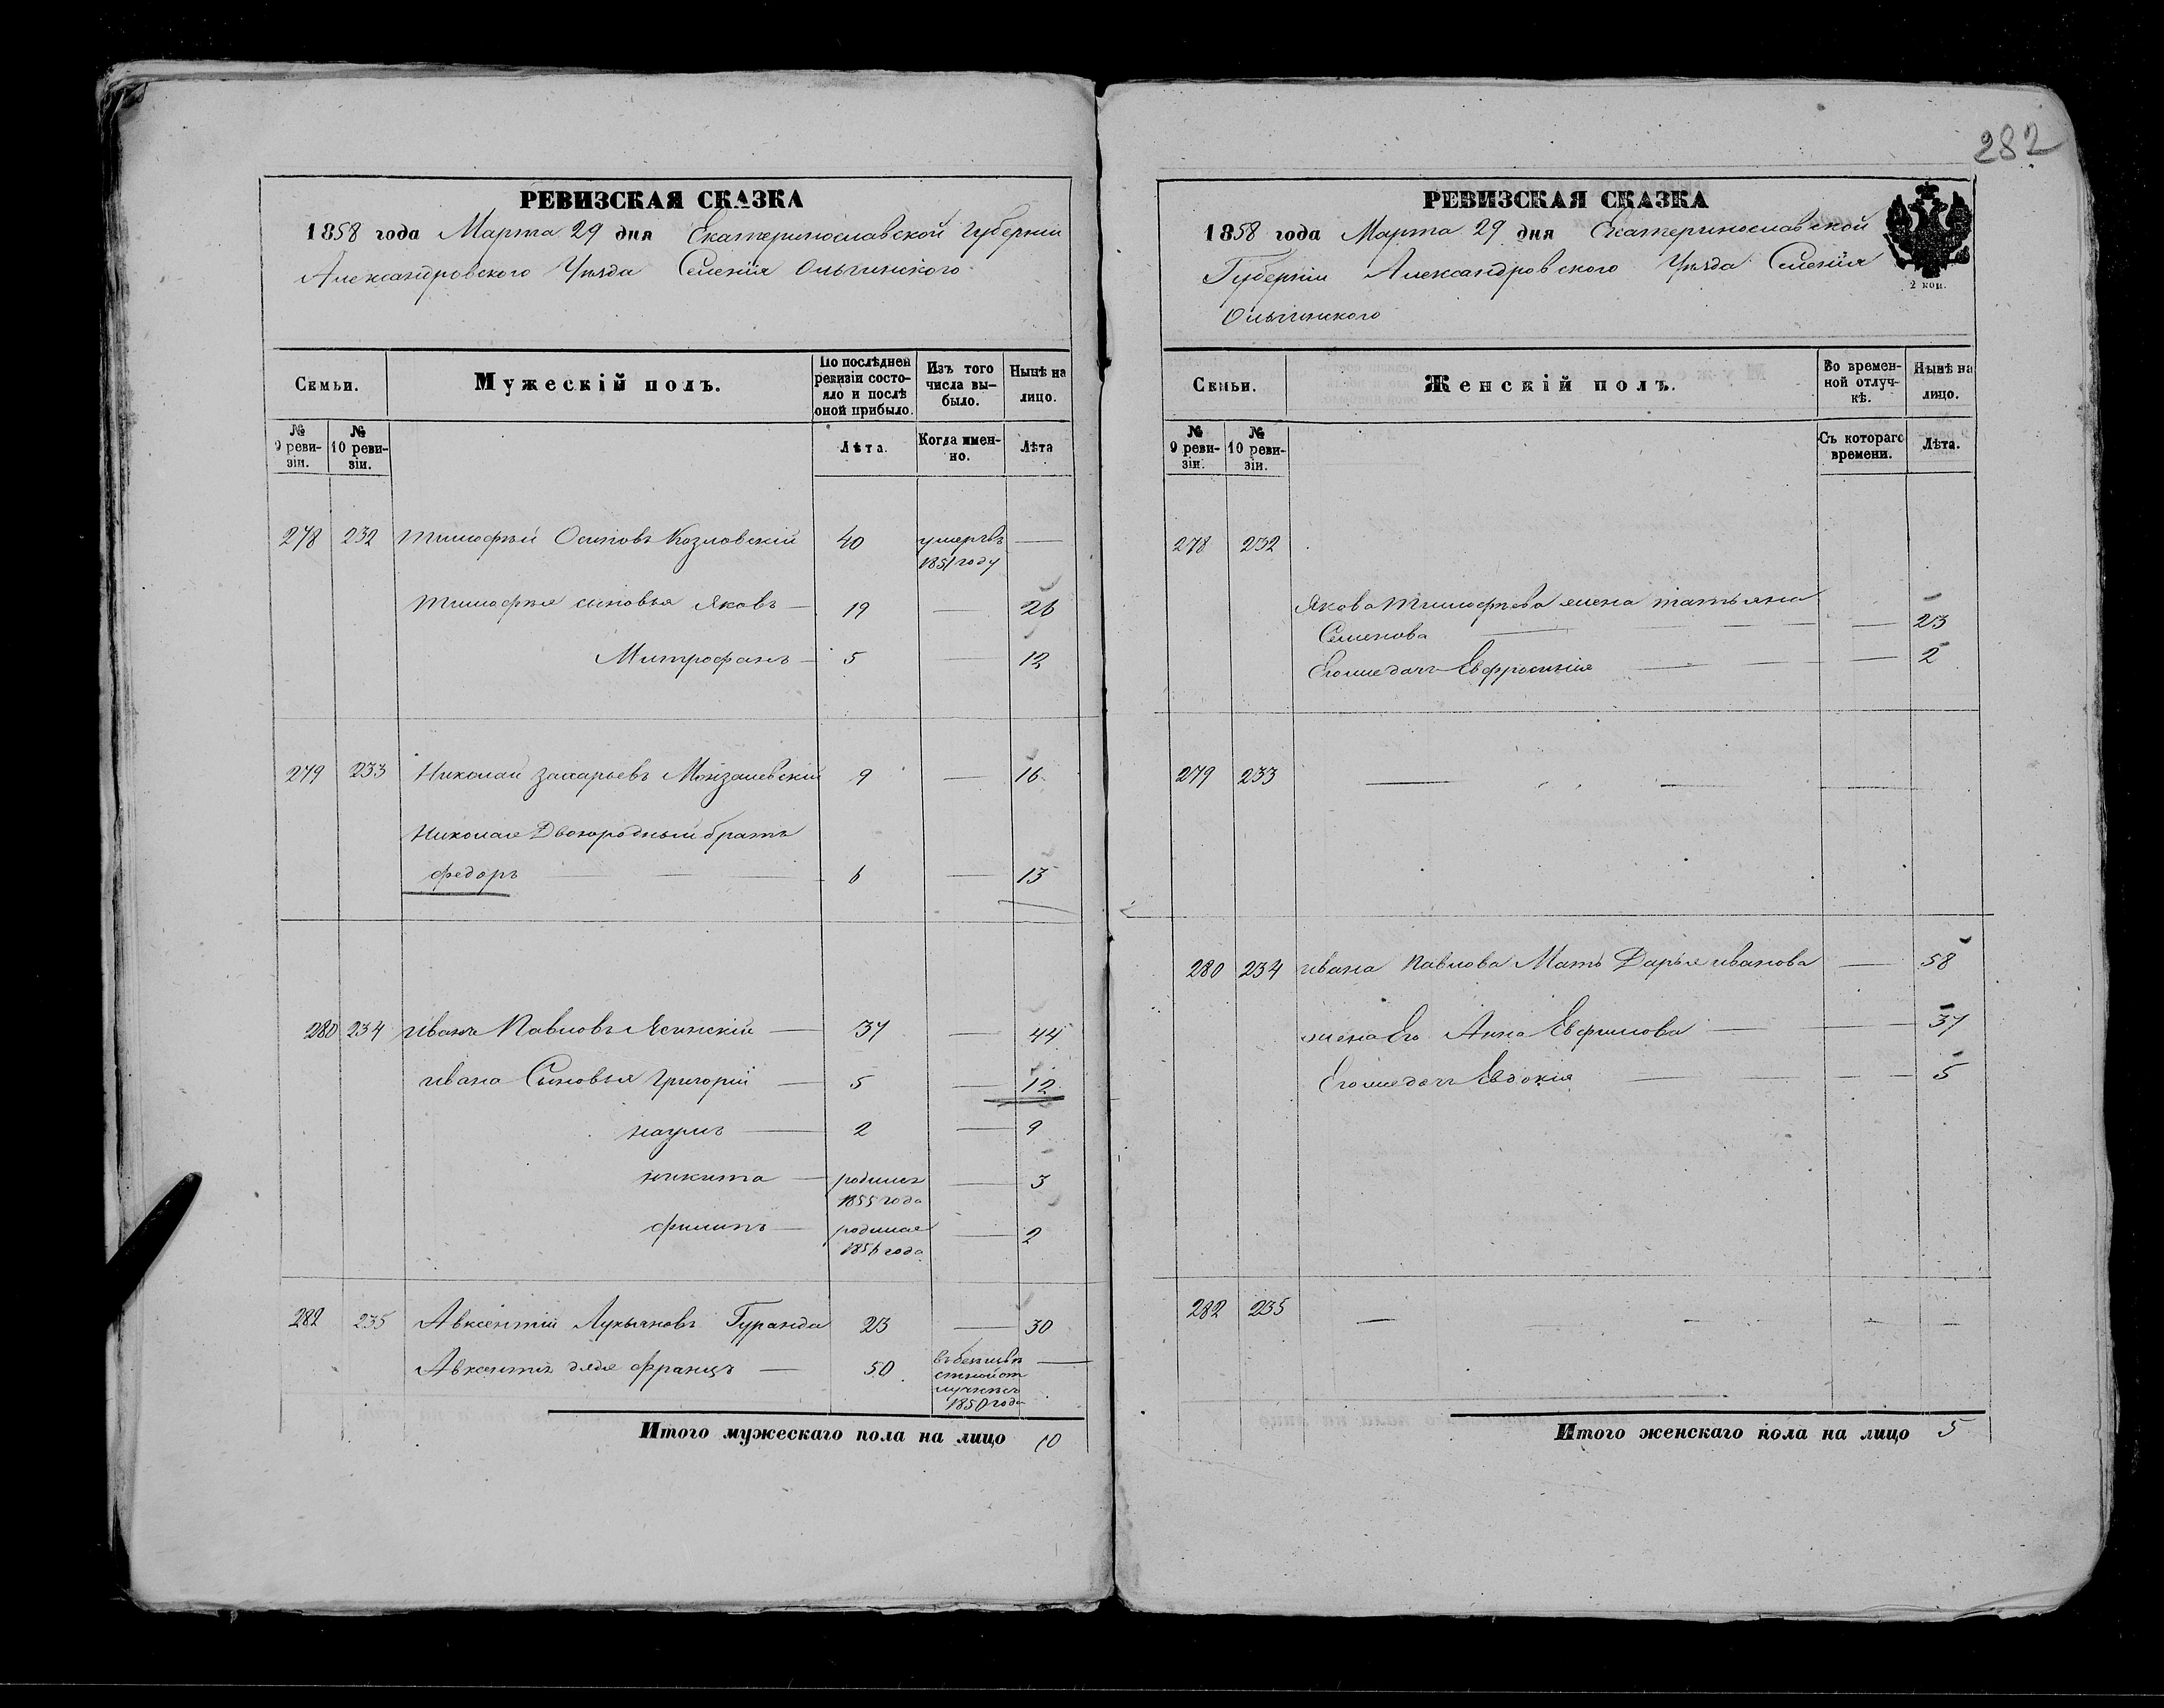 РЕВИЗСКАЯ СКАЗКА
1858 года Марта 29 дня Екатеринославской Губерніи
Александровского Уѣзда Селенія Ольгинского
Семьи.
Мужескій полъ.
По послѣдней ревизіи состояло и послѣ оной прибыло.
Изъ того числа выбыло.
Нынѣ на лицо.
№ 9 ревизіи.
№ 10 ревизіи.
Лѣта.
Когда именно.
Лѣта
278 232 Тимофѣй Осиповъ Козловскій 40 умеръ въ —
1851 году
Тимофѣя сыновья Яковъ — 19 — 26
Митрофанъ — 5 — 12
279 233 Николай Захарьевъ 9 — 16
Николая Двоюродный братъ
Федоръ — — — 6 — 13
280 234 Иванъ Павловъ Ясинскій — 37 — 44
Ивана Сыновья Григорій — 5 — 12
Наумъ — 2 — 9
Никита — родился — 3
1855 года
Филипъ — родился — 2
1856 года
282 235 Авксентій Лукьяновъ Гуранда 23 — 30
Авксентія дядя Францъ — 50 —
1850 года
Итого мужескаго пола на лицо 10
282
РЕВИЗСКАЯ СКАЗКА
1858 года Марта 29 дня Екатеринославской
Губерніи Александровского Уѣзда Селенія
Ольгинского
2 коп.
Семьи.
Женскій полъ.
Во временной отлучкѣ.
Нынѣ на лицо.
№ 9 ревизіи.
№ 10 ревизіи.
Съ котораго времени.
Лѣта.
278 232
Якова Тимофѣева жена Татьяна
Семенова — — — — 23
Его же дочь Евфросинія — — — 2
279 233 — — —
280 234 Ивана Павлова Мать Дарья Иванова — 58
жена Его Анна Евфимова — — 37
Его же дочь Евдокія — — — 5
282 235 — — — — —
Итого женскаго пола на лицо 5